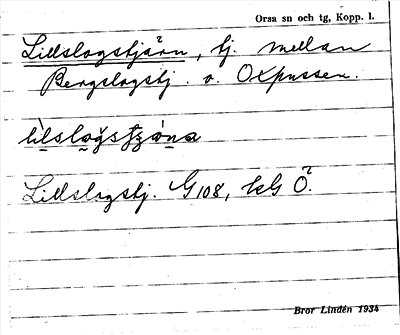 Orsa sn och tg, Kopp. l.
Lillslogstjärn, tj. mellan
Bergslogstj. o. Oxpussen.
Lillslogstj. G108, kG Ö.
Bror Lindén 1934